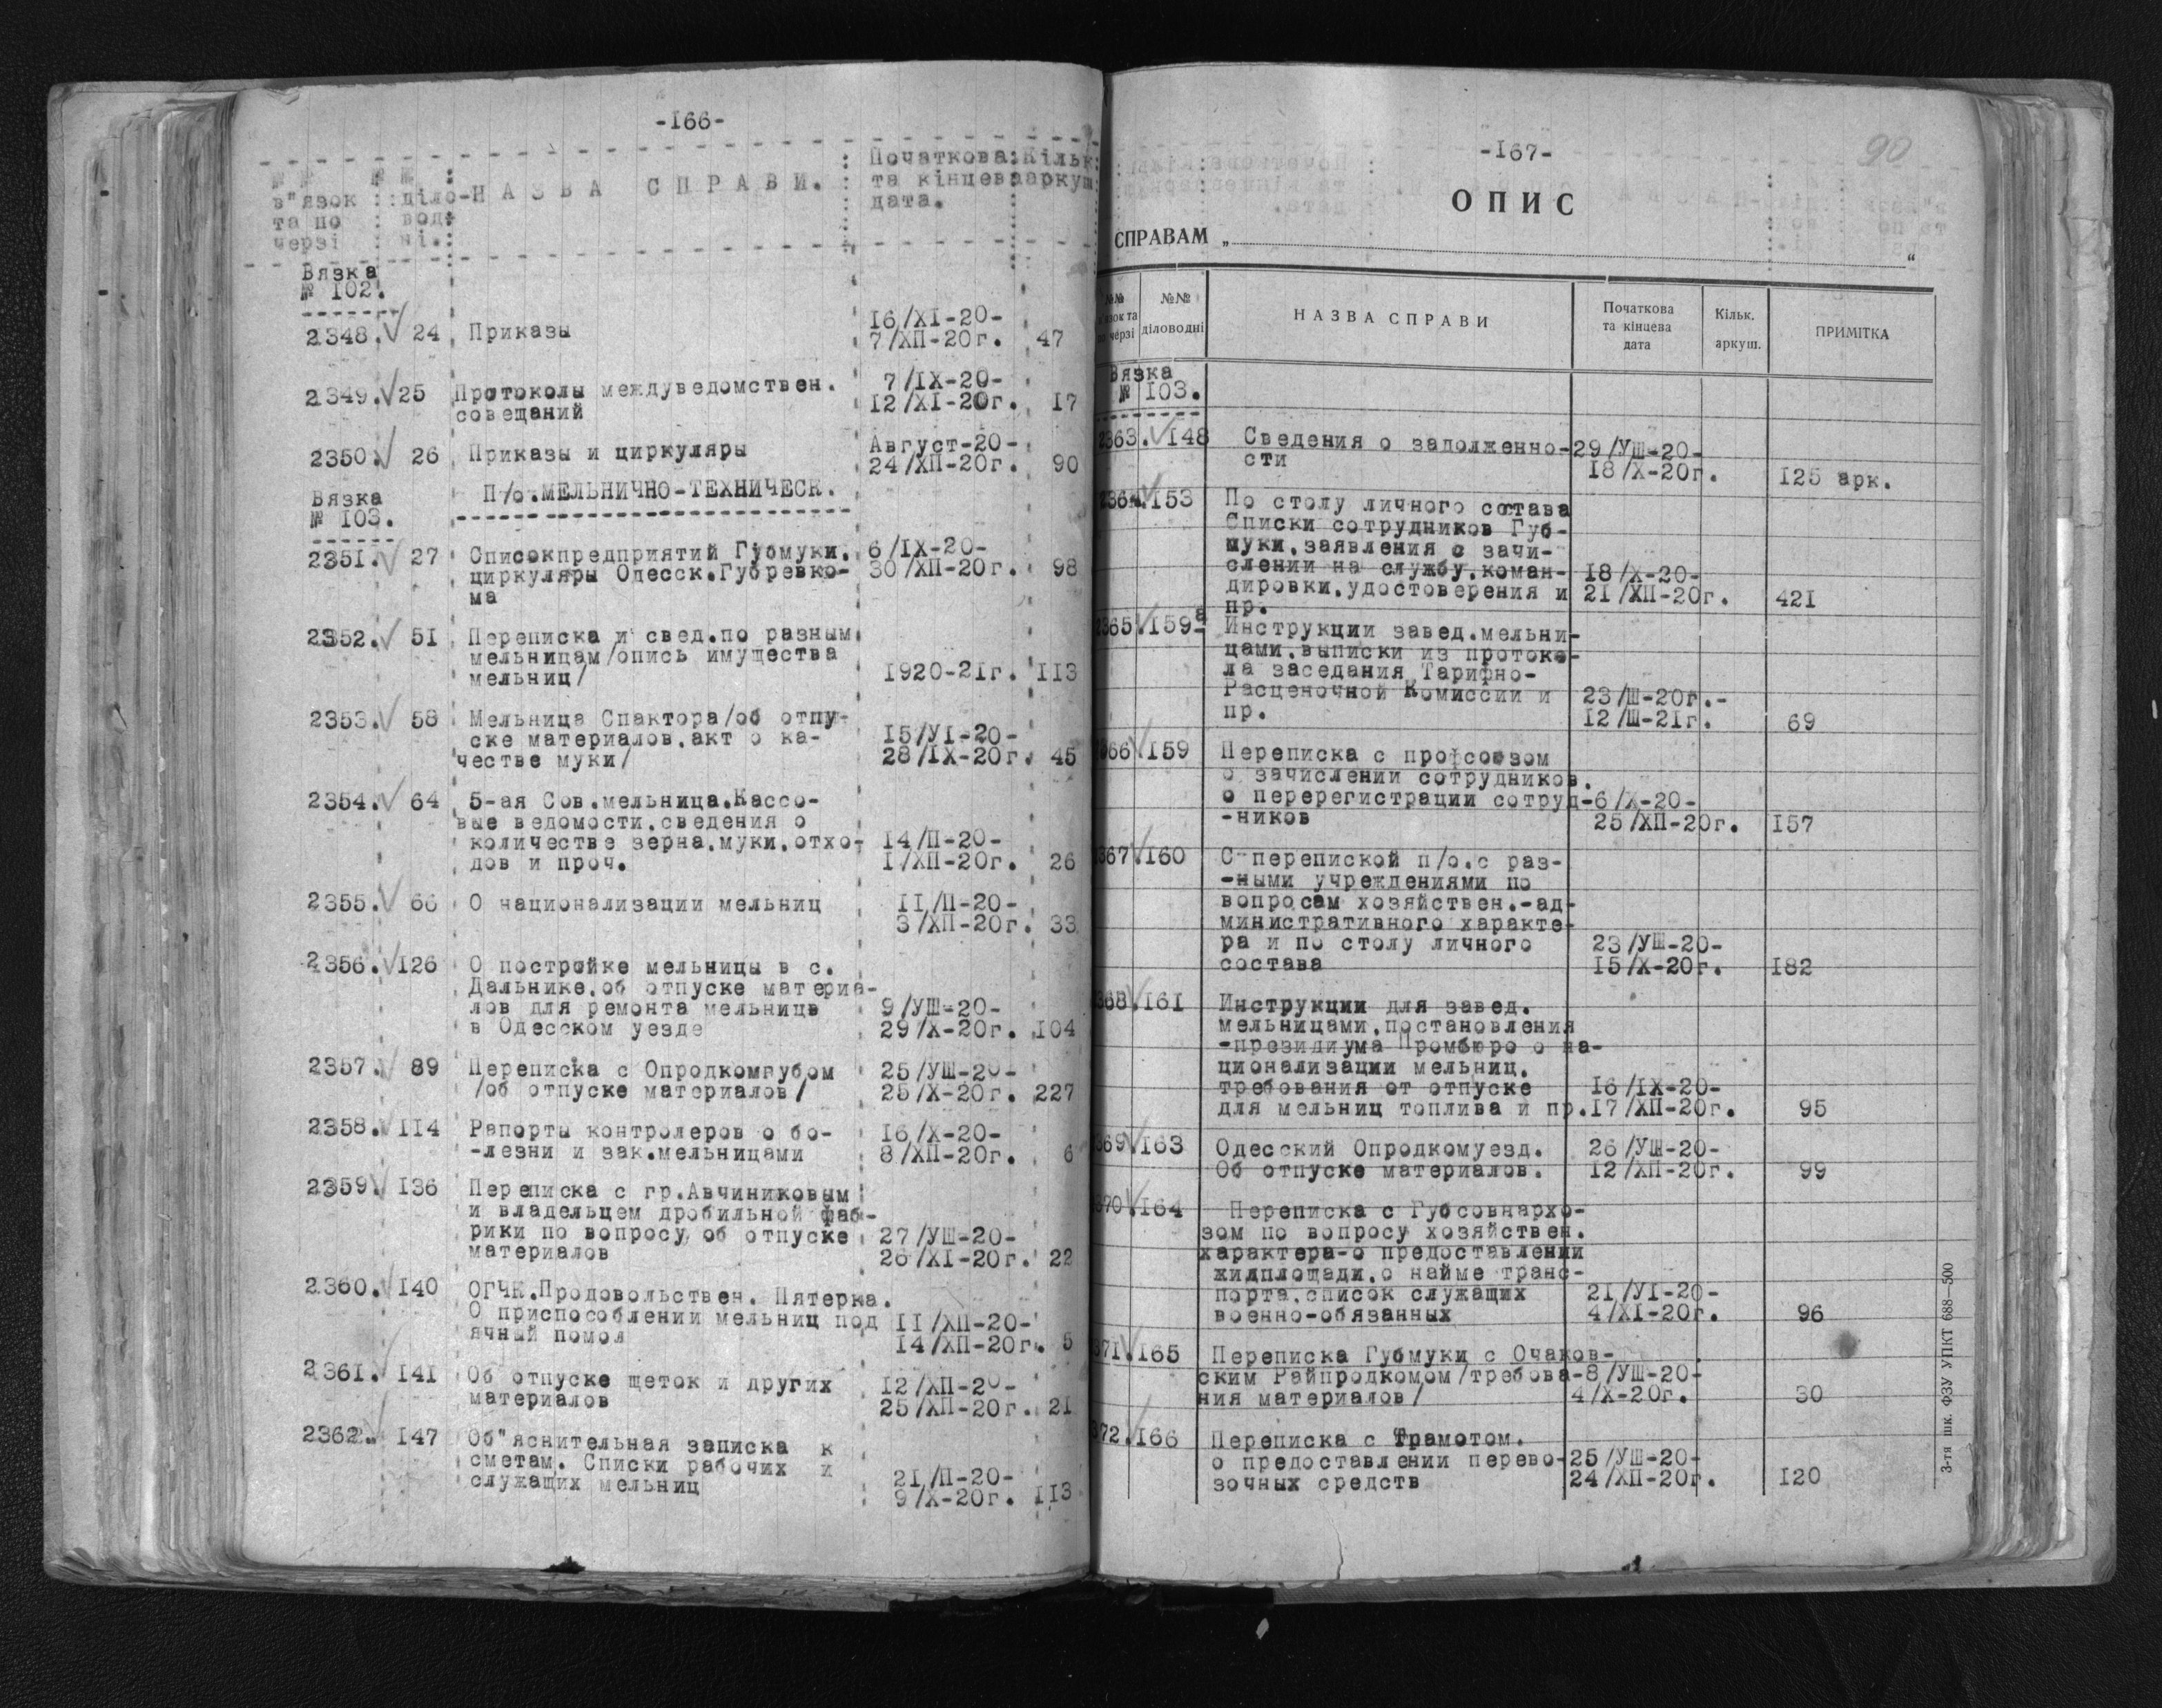 -166-
№№ №№ Початкова Кільк.
в"язок діло- НАЗВА СПРАВИ. та кінцева аркуш
та по вод- дата.
черзі ні.
Вязка
№ 102.
16/XI-20-
2348. 24 Приказы 7/ХП-20г. 47
2349. 25 Протоколы междуведомствен. 7/IX-20-
совещаний 12/XI-20г. 17
2350. 26 Приказы и циркуляры Август-20-
24/ХП-20г. 90
Вязка П/о.МЕЛЬНИЧНО-ТЕХНИЧЕСК.
№ 103.
2351. 27 Списокпредприятий Губмуки. 6/IX-20-
циркуляры Одесск.Губревко- 30/ХП-20г. 98
ма
2352. 51 Переписка и свед.по разным
мельницам/опись имущества
мельниц/ 1920-21г. 113
2353. 58 Мельница Спактора/об отпу-
ске материалов.акт о ка- 15/У1-20-
честве муки/ 28/IX-20г. 45
2354. 64 5-ая Сов.мельница.Кассо-
вые ведомости.сведения о
количестве зерна.муки.отхо- 14/П-20-
дов и проч. 1/ХП-20г. 26
2355. 66 О национализации мельниц 11/П-20-
3/ХП-20г. 33
2356. 126 О постройке мельницы в с.
Дальнике.об отпуске материа-
лов для ремонта мельнице 9/УШ-20-
в Одесском уезде 29/Х-20г. 104
2357. 89 Переписка с Опродкомгубом 25/УШ-20-
/об отпуске материалов/ 25/Х-20г. 227
2358. 114 Рапорты контролеров о бо- 16/Х-20-
-лезни и зак.мельницами 8/ХП-20г. 6
2359. 136 Переписка с гр.Авчиниковым
и владельцем дробильной фаб-
рики по вопросу об отпуске 27/УШ-20-
материалов 26/XI-20г. 22
2360. 140 ОГЧК.Продовольствен. Пятерка.
О приспособлении мельниц под 11/ХП-20-
ячный помол 14/ХП-20г. 5
2361. 141 Об отпуске щеток и других 12/ХП-20-
материалов 25/ХП-20г. 21
2362. 147 Об"яснительная записка к
сметам. Списки рабочих и 21/П-20-
служащих мельниц 9/Х-20г. 113
90
-167-
ОПИС
СПРАВАМ „ “
№№ №№ НАЗВА СПРАВИ Початкова та кінцева дата Кільк. аркуш. ПРИМІТКА
діловодні
Вязка
№ 103.
2363. 148 Сведения о задолженно- 29/УШ-20-
сти 18/Х-20г. 125 арк.
2364. 153 По столу личного сотава
Списки сотрудников Губ-
муки.заявления о зачи-
слении на службу.коман- 18/Х-20-
дировки.удостоверения и 21/ХП-20г. 421
пр.
2365. 159а Инструкции завед.мельни-
цами.выписки из протоко-
ла заседания Тарифно-
Расценочной Комиссии и 23/Ш-20г.-
пр. 12/Ш-21г. 69
2366. 159 Переписка с профсоюзом
о зачислении сотрудников.
о перерегистрации сотруд- 6/Х-20-
-ников 25/ХП-20г. 157
2367. 160 С перепиской п/о.с раз-
-ными учреждениями по
вопросам хозяйствен.-ад-
министративного характе-
ра и по столу личного 23/УШ-20-
состава 15/Х-20г. 182
2368. 161 Инструкции для завед.
мельницами.постановления
-президиума Промбюро о на-
ционализации мельниц.
требования от отпуске 16/IX-20-
для мельниц топлива и пр. 17/ХП-20г. 95
369. 163 Одесский Опродкомуезд. 26/УШ-20-
Об отпуске материалов. 12/ХП-20г. 99
370. 164 Переписка с Губсовнархо-
зом по вопросу хозяйствен.
характера-о предоставлении
жидплощади.о найме транс-
порта.список служащих 21/У1-20-
военно-обязанных 4/XI-20г. 96
371. 165 Переписка Губмуки с Очаков-
ским Райпродкомом/требова- 8/УШ-20-
ния материалов/ 4/Х-20г. 30
372. 166 Переписка с Трамотом.
о предоставлении перево- 25/УШ-20-
зочных средств 24/ХП-20г. 120
3-тя шк. ФЗУ УПКТ 688—500